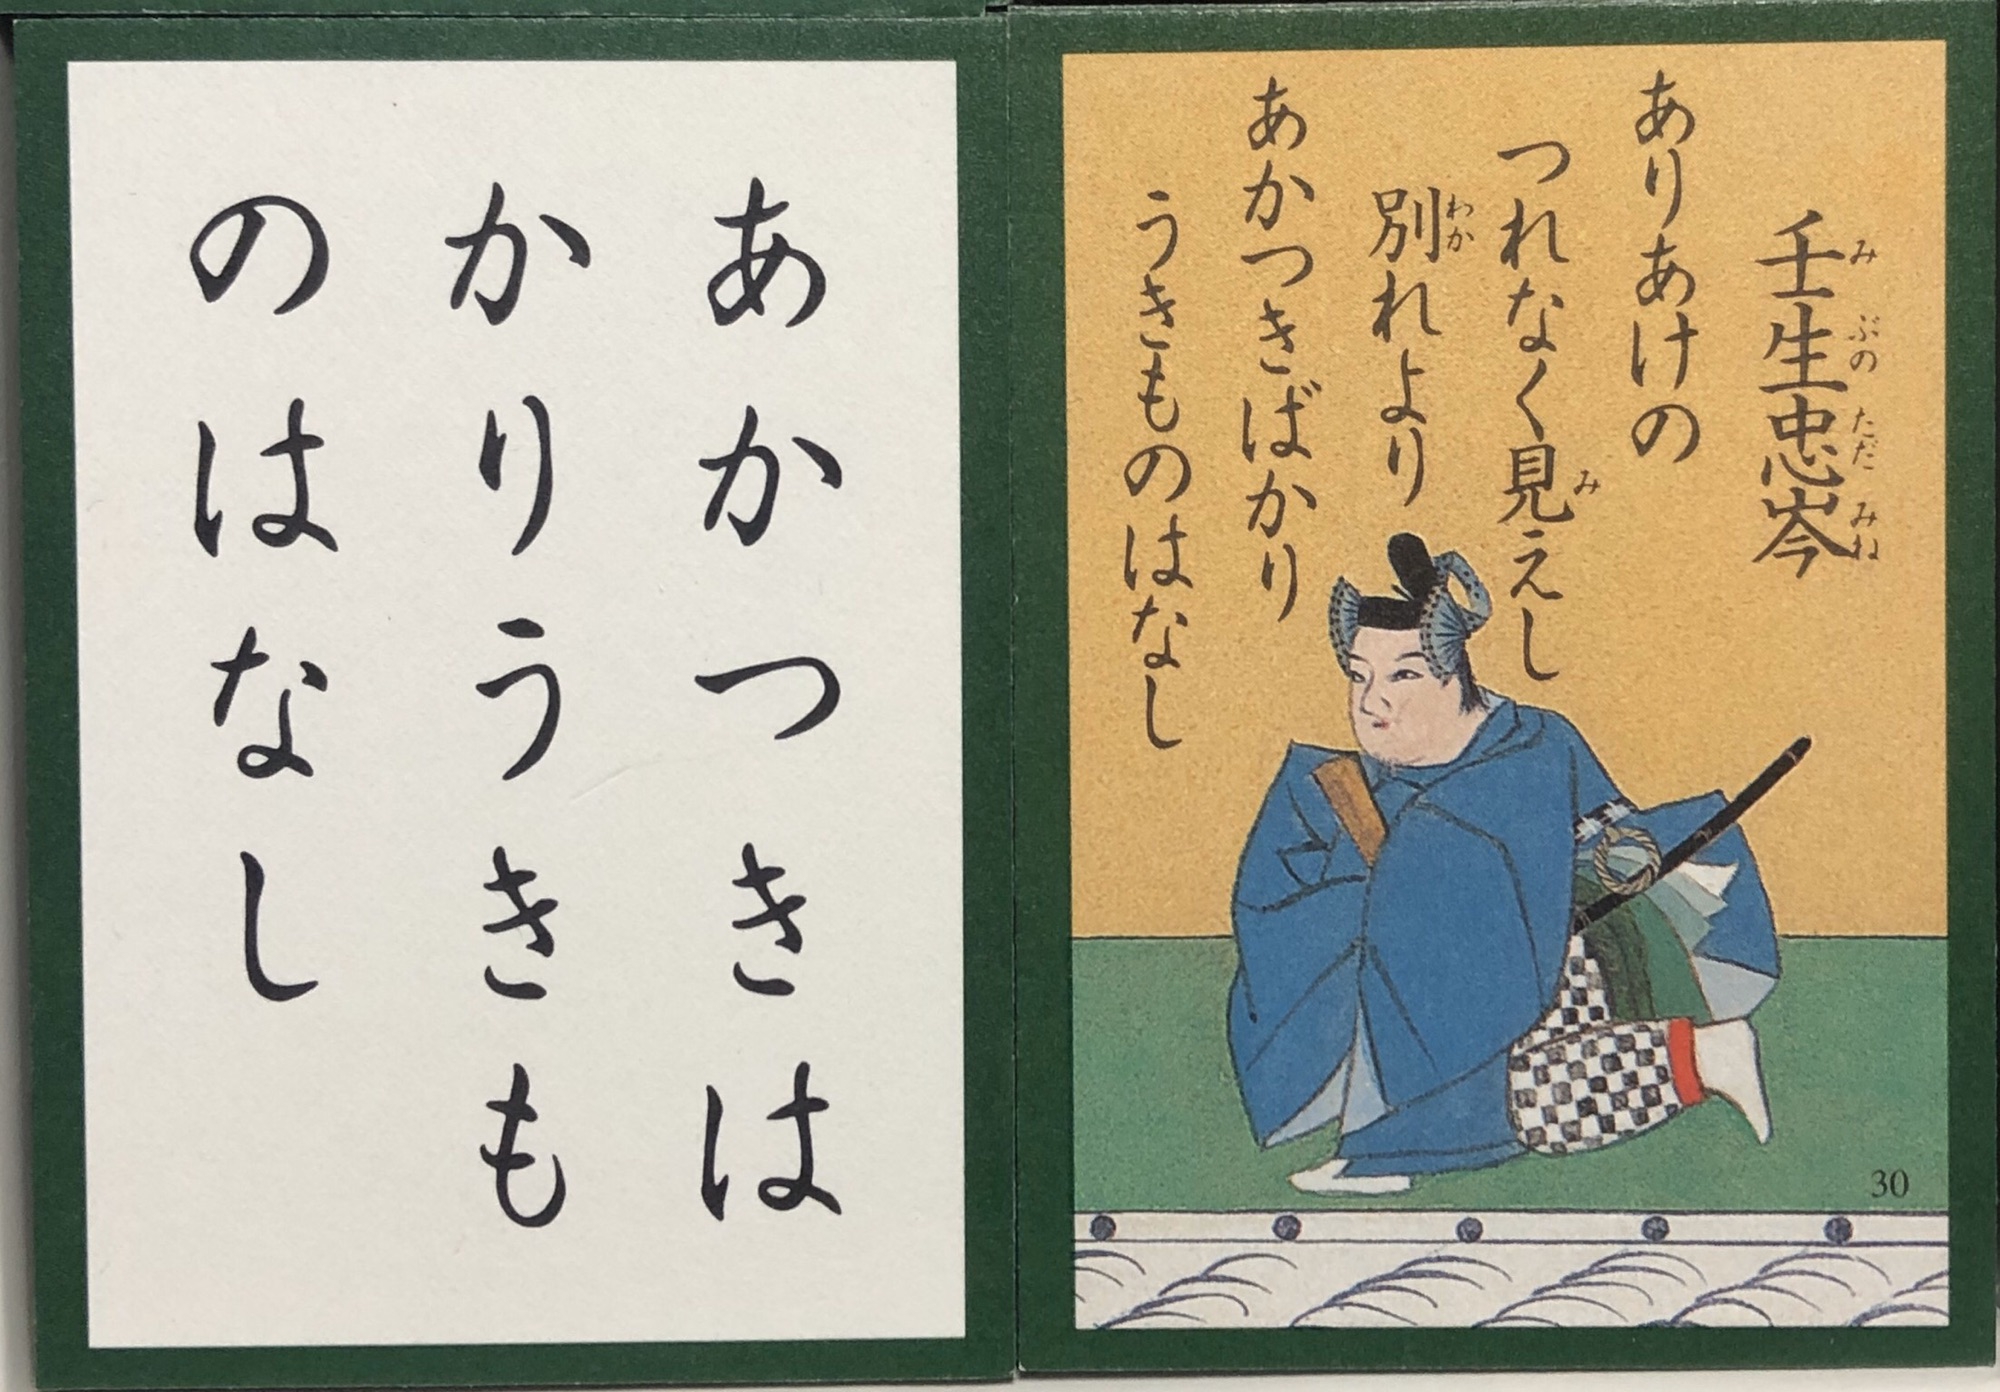 壬生忠岑
み ぶの ただ みね
ありあけの
つれなく見えし
み
別れより
わか
あかつきばかり
うきものはなし
30
あかつきは
かりうきも
のはなし